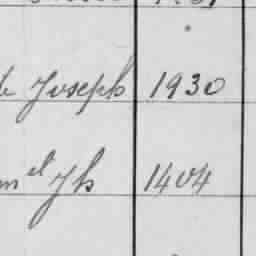 Joseph 1930
el Jh 1404